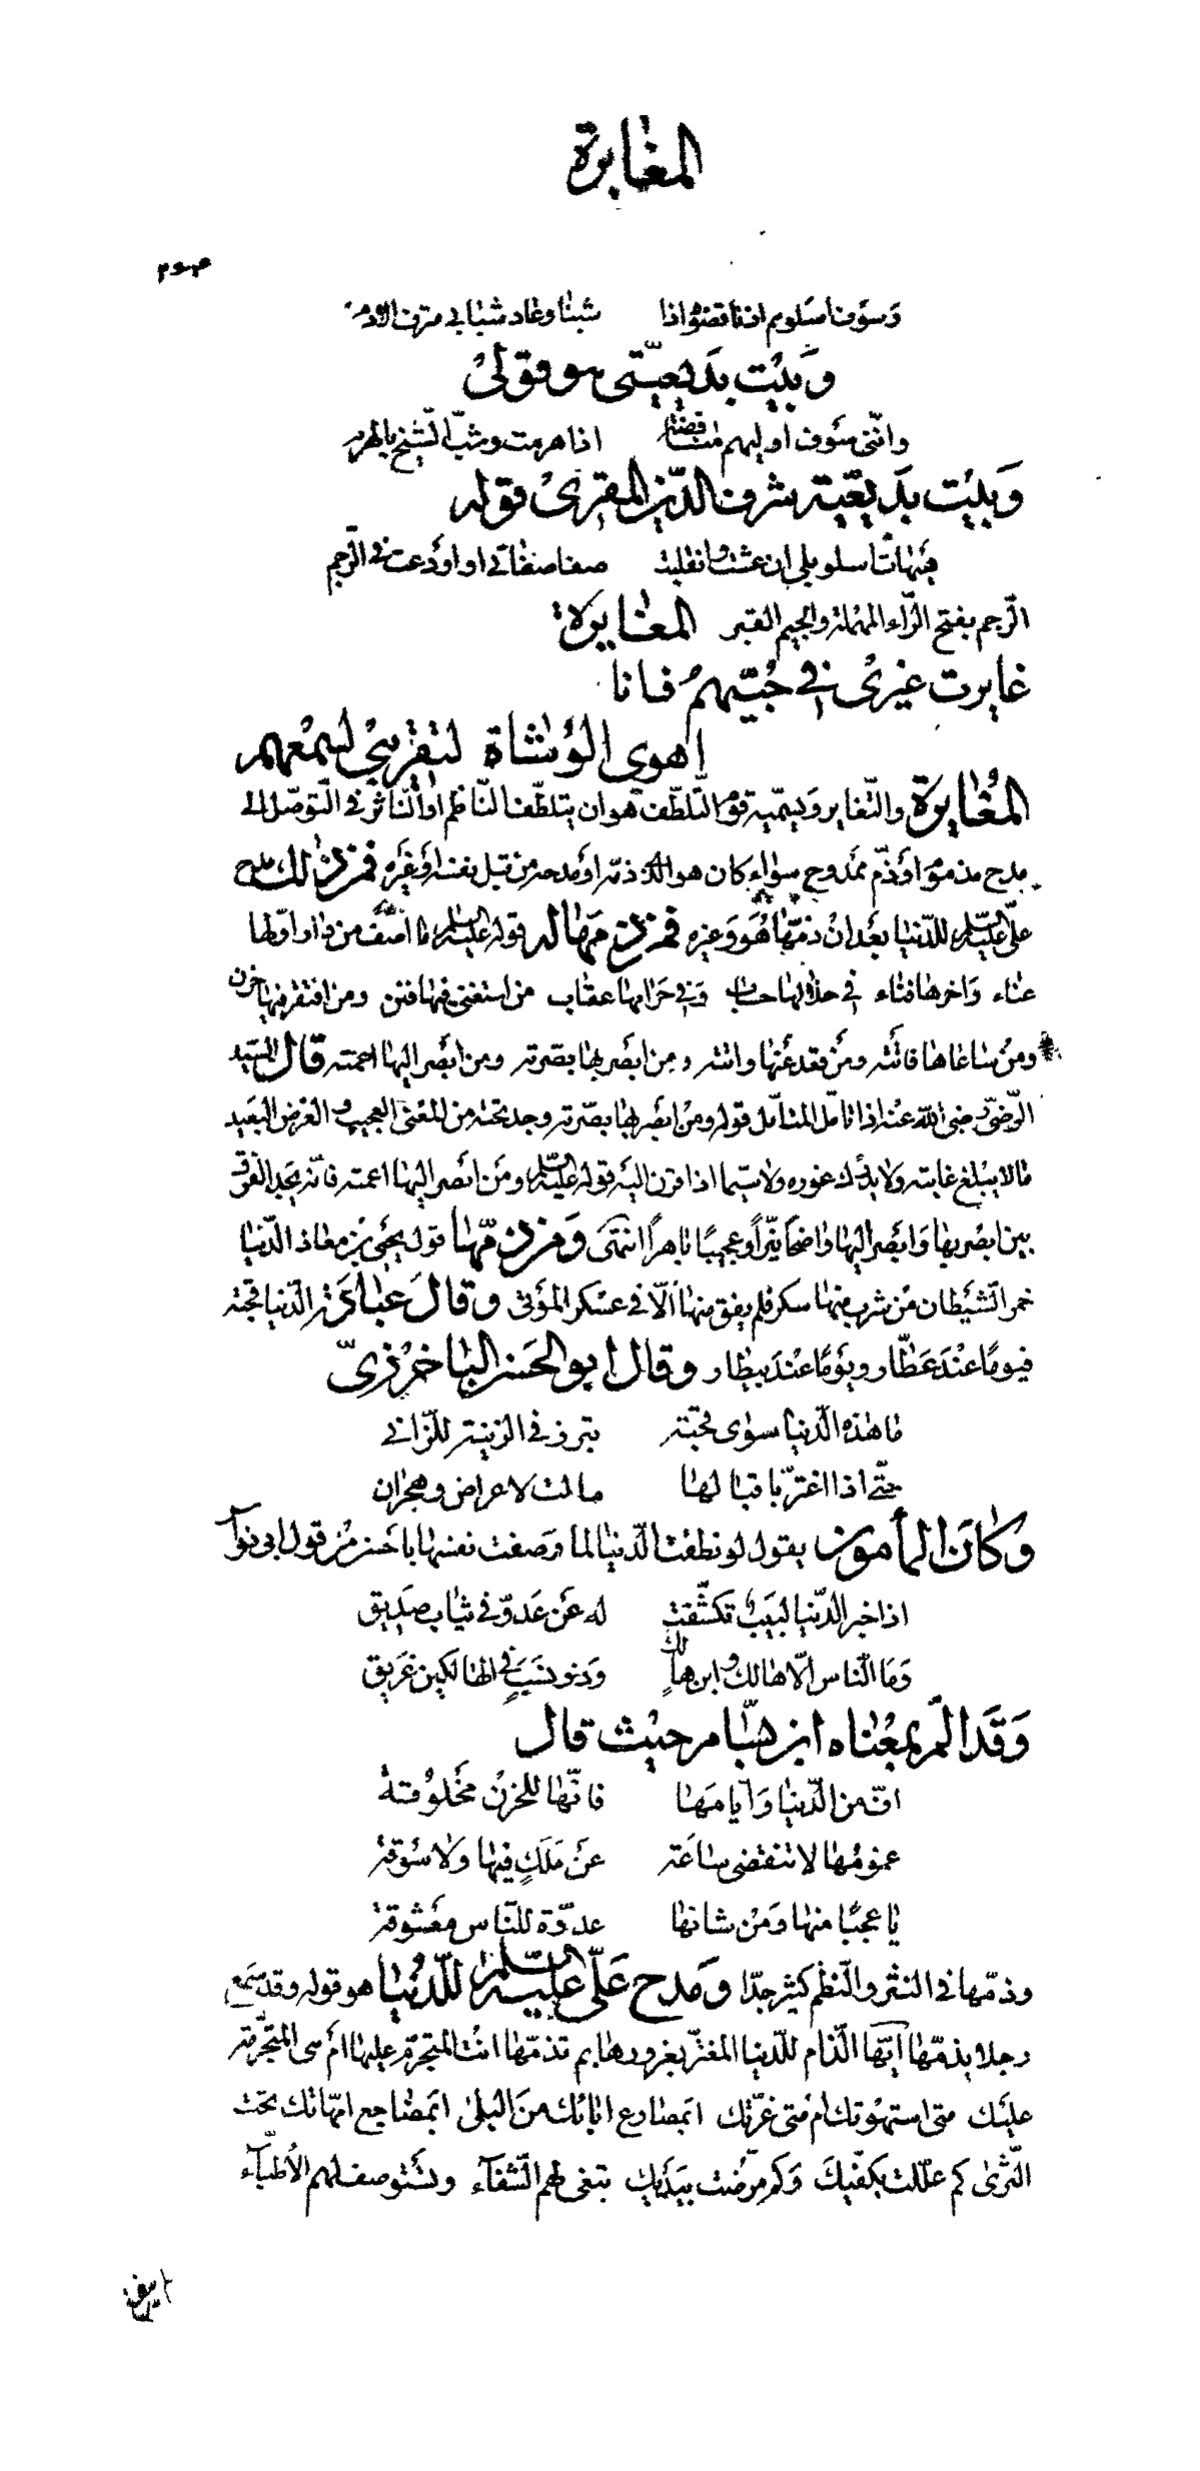 المغايرة
وسوف اسلوهم اذ ناقضوا اذا شبنا وعاد شبابي
وبيت بديعيتي هو قولي
وانني سوف اوليهم مناقضة اذا هرمت وشبّ الشيخ بالهرم
وبيت بديعية شرف الدين المقري قوله
هيهات اسلو بلى ان عشت وانقلبت صفا صفاتي او اودعت في الرجم
الرجم بفتح الراء المهملة والجيم القبر المغايرة
غايرت غيري في حبّيهم فانا
اهوى الوشاة لتقريبي لسمعهم
المغايرة والتغاير ويسمّيه قوم التلطّف هو ان يتلطّف الناظم او الناثر في التوصّل الى
مدح مذموم او ذمّ ممدوح سواء كان هو الذي ذمّه او مدحه من قبل نفسه او غيره فمن ذلك مدح
علي عليه السلام للدنيا بعد ان ذمّها هو وغيره فمن ذمّها له قوله عليه السلام ما اصف من دار اولها
عناء واخرها فناء في حلالها حساب وفي حرامها عقاب من استغنى فيها فتن ومن افتقر فيها حزن
ومن ساعاها فاتته ومن قعد عنها واتته ومن ابصر بها بصّرته ومن ابصر اليها اعمته قال السيد
الرضي رضي الله عنه اذا تامّل المتامّل قوله ومن ابصر بها بصّرته وجد تحته من المعنى العجيب والغرض البعيد
ما لا يبلغ غايته ولا يدرك غوره ولا سيما اذا قرن اليه قوله عليه السلام ومن ابصر اليها اعمته فانّه يجد الفرق
بين ابصر بها وابصر اليها واضحا نيّرا وعجيبا باهرا انتهى ومن ذمّها قول يحيى بن معاذ الدنيا
خمر الشيطان من شرب منها سكر فلم يفق منها الّا في عسكر الموتى وقال عبادة الدنيا قحبة
فيوما عند عطّار ويوما عند بيطار وقال ابو الحسن الباخرزيّ
ما هذه الدنيا سوى قحبة تبرز في الزينة للزاني
حتّى اذا اغترّ باقبالها مالت لاعراض وهجران
وكان المأمون يقول لو نطقت الدنيا لما وصفت نفسها باحسن من قول ابي نواس
اذا اختبر الدنيا لبيب تكشّفت له عن عدوّ في ثياب صديق
وما الناس الّا هالك وابن هالك وذو نسب في الهالكين غريق
وقد المّ بمعناه ابن بسّام حيث قال
افّ من الدنيا وايامها فانّها للحزن مخلوقة
غمومها لا تنقضي ساعة عن ملك فيها ولا سوقة
يا عجبا منها ومن شانها عدوّة للناس معشوقة
وذمّها في النثر والنظم كثير جدّا ومدح عليّ عليه السلام للدنيا هو قوله وقد سمع
رجلا يذمّها ايّها الذام للدنيا المغترّ بغرورها بم تذمّها انت المتجرّم عليها ام هى المتجرّمة
عليك متى استهوتك ام متى غرّتك ابمصارع ابائك من البلى ابمضاجع امّهاتك تحت
الثرى كم علّلت بكفّيك وكم مرّضت بيديك تبغى لهم الشفآء وتستوصف لهم الأطبّآء